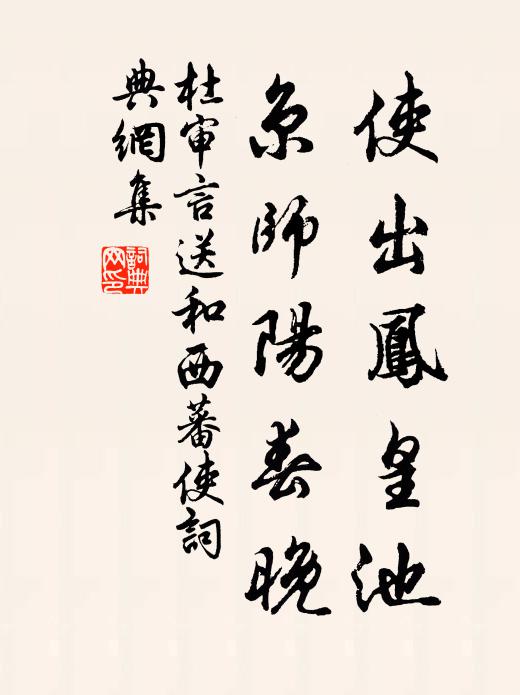 使出鳳皇池
京師陽春晚
杜审言送和西蕃使詞
典網集
詞典网印